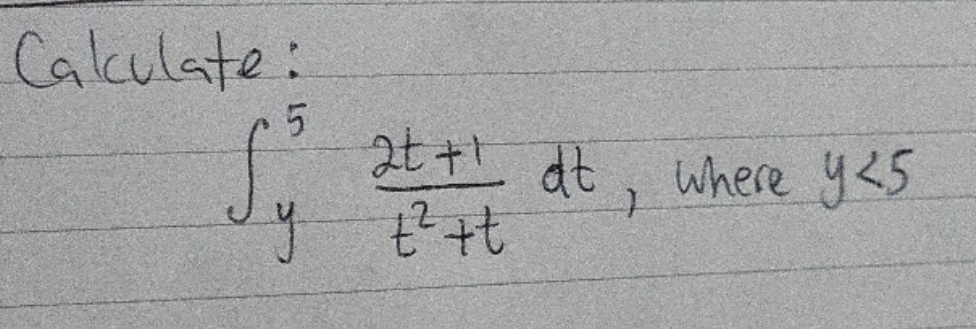 Calculate:
∫_y^5 (2t+1)/(t^2+t) dt, where y<5